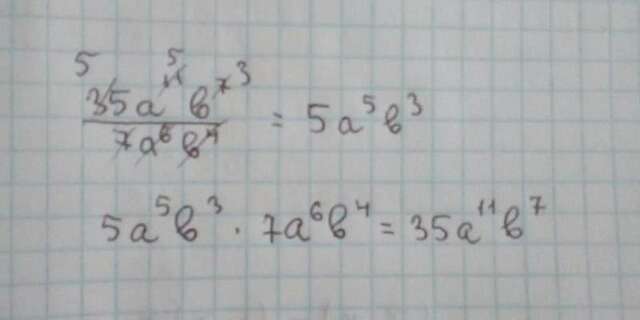 5 5 3
35a¹¹b⁷
7a⁶b⁴ = 5a⁵b³
5a⁵b³ · 7a⁶b⁴ = 35a¹¹b⁷